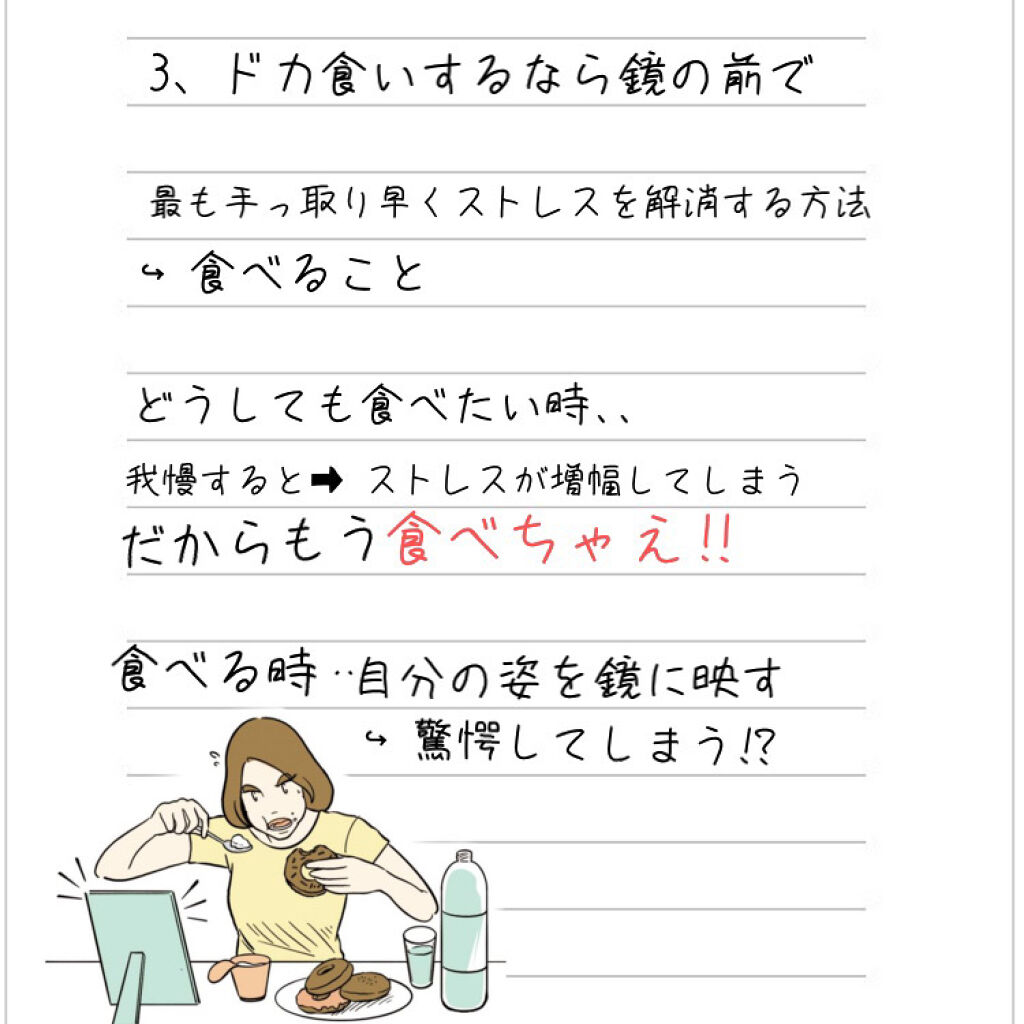 3、ドカ食いするなら鏡の前で
最も手っ取り早くストレスを解消する方法
↪ 食べること
どうしても食べたい時、、
我慢すると➡ ストレスが増幅してしまう
だからもう食べちゃえ!!
食べる時‥自分の姿を鏡に映す
↪ 驚愕してしまう!?